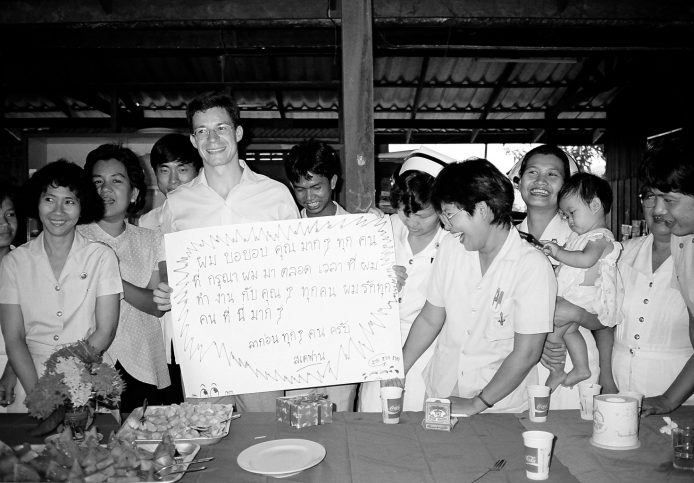 ผม ขอขอบ คุณ มาก ๆ ทุก คน
ที่ กรุณา ผม มา ตลอด เวลา ที่ ผม
ทำ งาน กับ คุณ ๆ ทุกคน ผม รักทุก ๆ
คน ที่ นี่ มาก ๆ
ลาก่อน ทุก ๆ คน ครับ